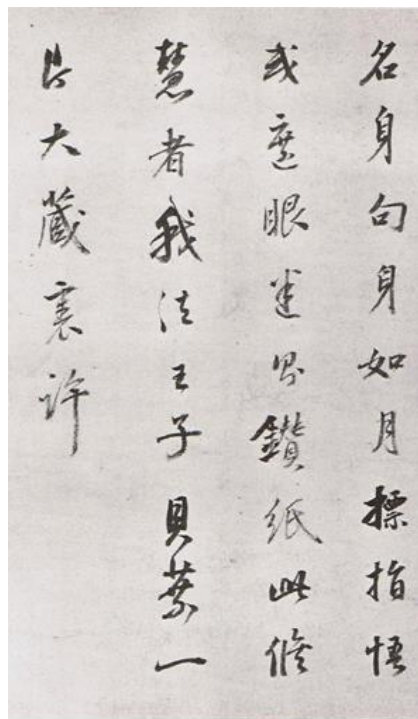 名身句身如月標指悟
或遮眼迷鑽紙此脩
慧者我法王子貝葉一
片大藏裏許